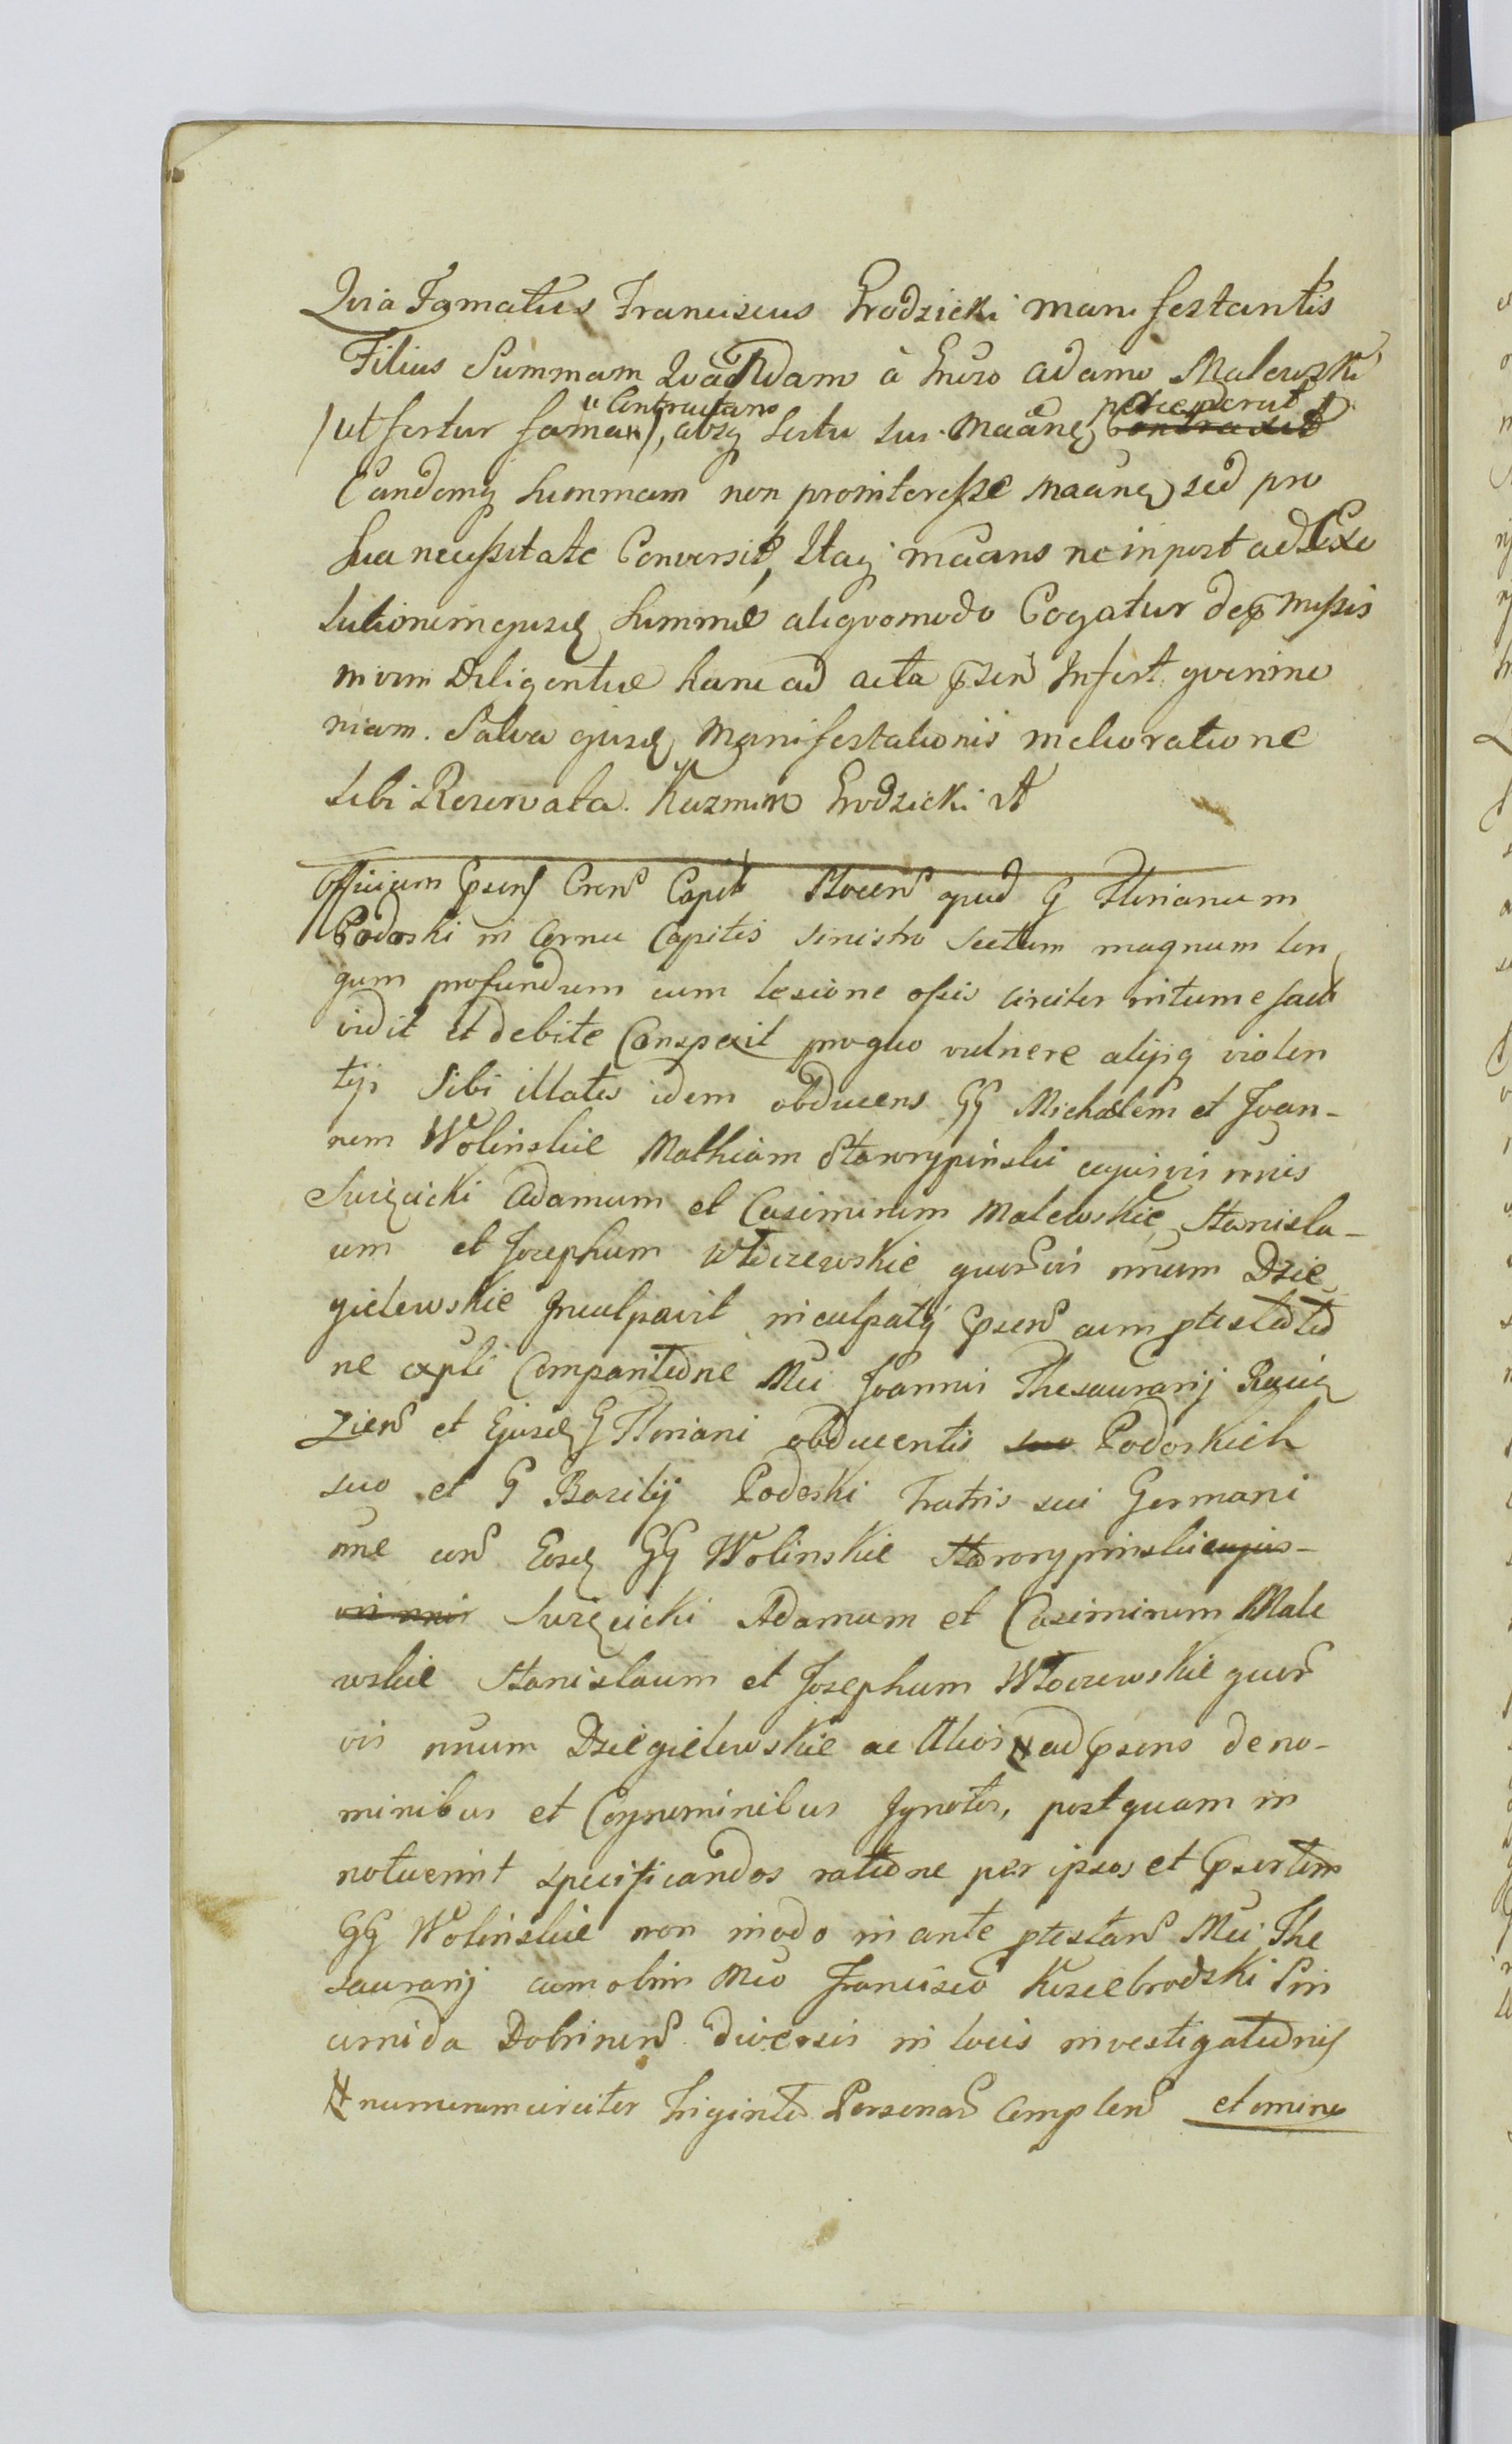 Qvia Famatus Franciscus Grodzicki manifestantis
Filius Summam Qvandam à Gnroso Adamo Malewski
/ut fertur fama/, Contractam absq scitu sui maane perceperat Contraxit
Eandemq summam non pro interesse maane sed pro
sua necessitate Conversit, Itaq maans ne inpost ad Exo
lutionem ejusd summae aliqvomodo Cogatur de pmissis
nivm Diligentiae hanc ad acta psen Infert qverimo
niam. Salva ejusd Manifestationis melioratione
sibi Reservata. Kazmirz Grodzicki
Officium psens Crens Capit Plocens apud G Florianum
Podoski in Cornu Capitis sinistro sectum magnum lon
gum profundum cum lesione ossis circiter intumefact
vidit et debite Conspexit pro quo vulnere alijsq violen
tijs Sibi illatis idem obducens GG Michaelem et Joan-
nem Wolinskie Mathiam Starorypiński cujusvis nnis
Swięcicki Adamum et Casimirum Malewskie, Stanisla-
um et Josephum Wloczewskie quorvis nnum Dzie
gielewskie Inculpavit inculpatq psens cum ptestatio
ne expli Comparitione Mci Joannis Thesaurarij Raciąz
ziens et Ejusd G Floriani obducentis suo Podoskich
suo et G Bazilij Podoski Fratris sui Germani
nne con Eosd GG Wolinskie Starorypinski cujus-
vis nnis Swięcicki Adamum et Casimirum Male
wskie Stanislaum et Josephum Wloczewskie quor
vis nnum Dziegielewskie ac Alios # ad psens de no-
minibus et Cognominibus Ignotos, postquam in
notuerint specificandos ratione per ipsos et psertim
GG Wolinskie non modo in ante ptestans Mci The
saurarij cum olim Mco Francisco Koziebrodski Pin
cernida Dobrinens diversis in locis investigationis
# numerum circiter triginta Personar Complens et omine